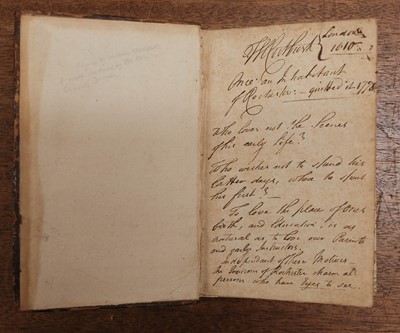 London
1810
Once an Inhabitant
of Rochester:— quitted it 1778
Who loves not the Scenes
of his early life?
Who wishes not to spend his
latter days, where he spent
his first?—
To love the place of Ones
birth, and Education, is as
natural as to love our Parents
and early Instructors.
Independent of these Motives—
the Environs of Rochester charm all
persons who have Eyes to see.